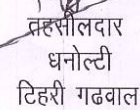 तहसीलदार
धनोल्टी
टिहरी गढवाल